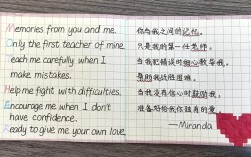 Memories from you and me.
Only the first teacher of mine.
Teach me carefully when I
make mistakes.
Help me fight with difficulties.
Encourage me when I don't
have confidence.
Ready to give me your own love.
你与我之间的记忆。
只是我的第一任老师。
当我犯错误时细心教导我。
帮助我战胜困难。
当我没有信心时鼓励我。
准备好给我你独有的爱。
—Miranda